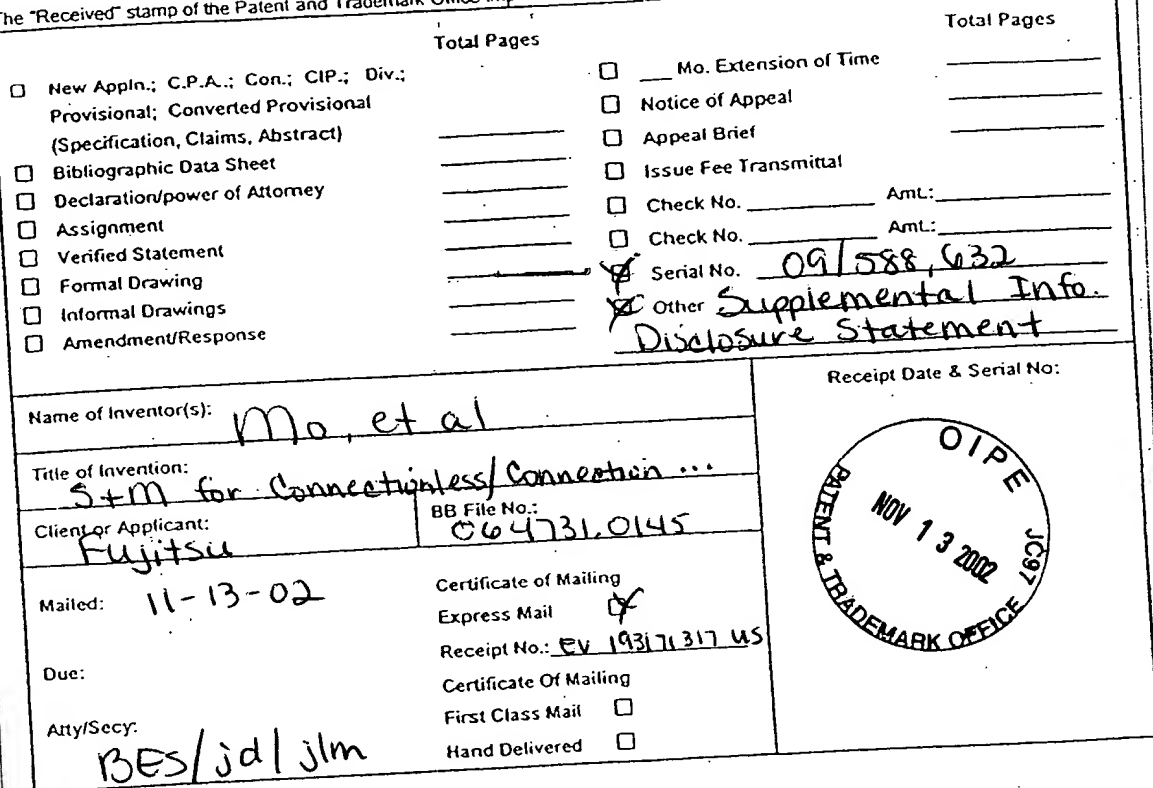 The "Received" stamp of the Patent and Trademark Office
Total Pages
☐ New Appln.; C.P.A.; Con.; CIP.; Div.;
Provisional; Converted Provisional
(Specification, Claims, Abstract)
☐ Bibliographic Data Sheet
☐ Declaration/power of Attorney
☐ Assignment
☐ Verified Statement
☐ Formal Drawing
☐ Informal Drawings
☐ Amendment/Response
Total Pages
☐ ___ Mo. Extension of Time
☐ Notice of Appeal
☐ Appeal Brief
☐ Issue Fee Transmittal
☐ Check No. Amt.:
☐ Check No. Amt.:
☒ Serial No. 09/588,632
☒ Other Supplemental Info.
Disclosure Statement
Name of Inventor(s): Mo, et al
Title of Invention:
S+M for Connectionless/Connection ...
Client or Applicant:
Fujitsu
BB File No.:
064731.0145
Mailed: 11-13-02
Due:
Atty/Secy:
BES/jd/jlm
Certificate of Mailing
Express Mail ☒
Receipt No.: EV 193171317 US
Certificate Of Mailing
First Class Mail ☐
Hand Delivered ☐
Receipt Date & Serial No:
OIPE JC97
NOV 13 2002
PATENT & TRADEMARK OFFICE